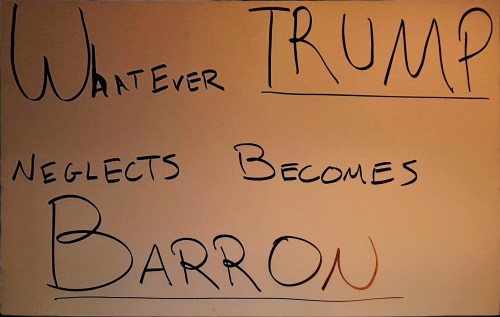 WHATEVER TRUMP
NEGLECTS BECOMES
BARRON